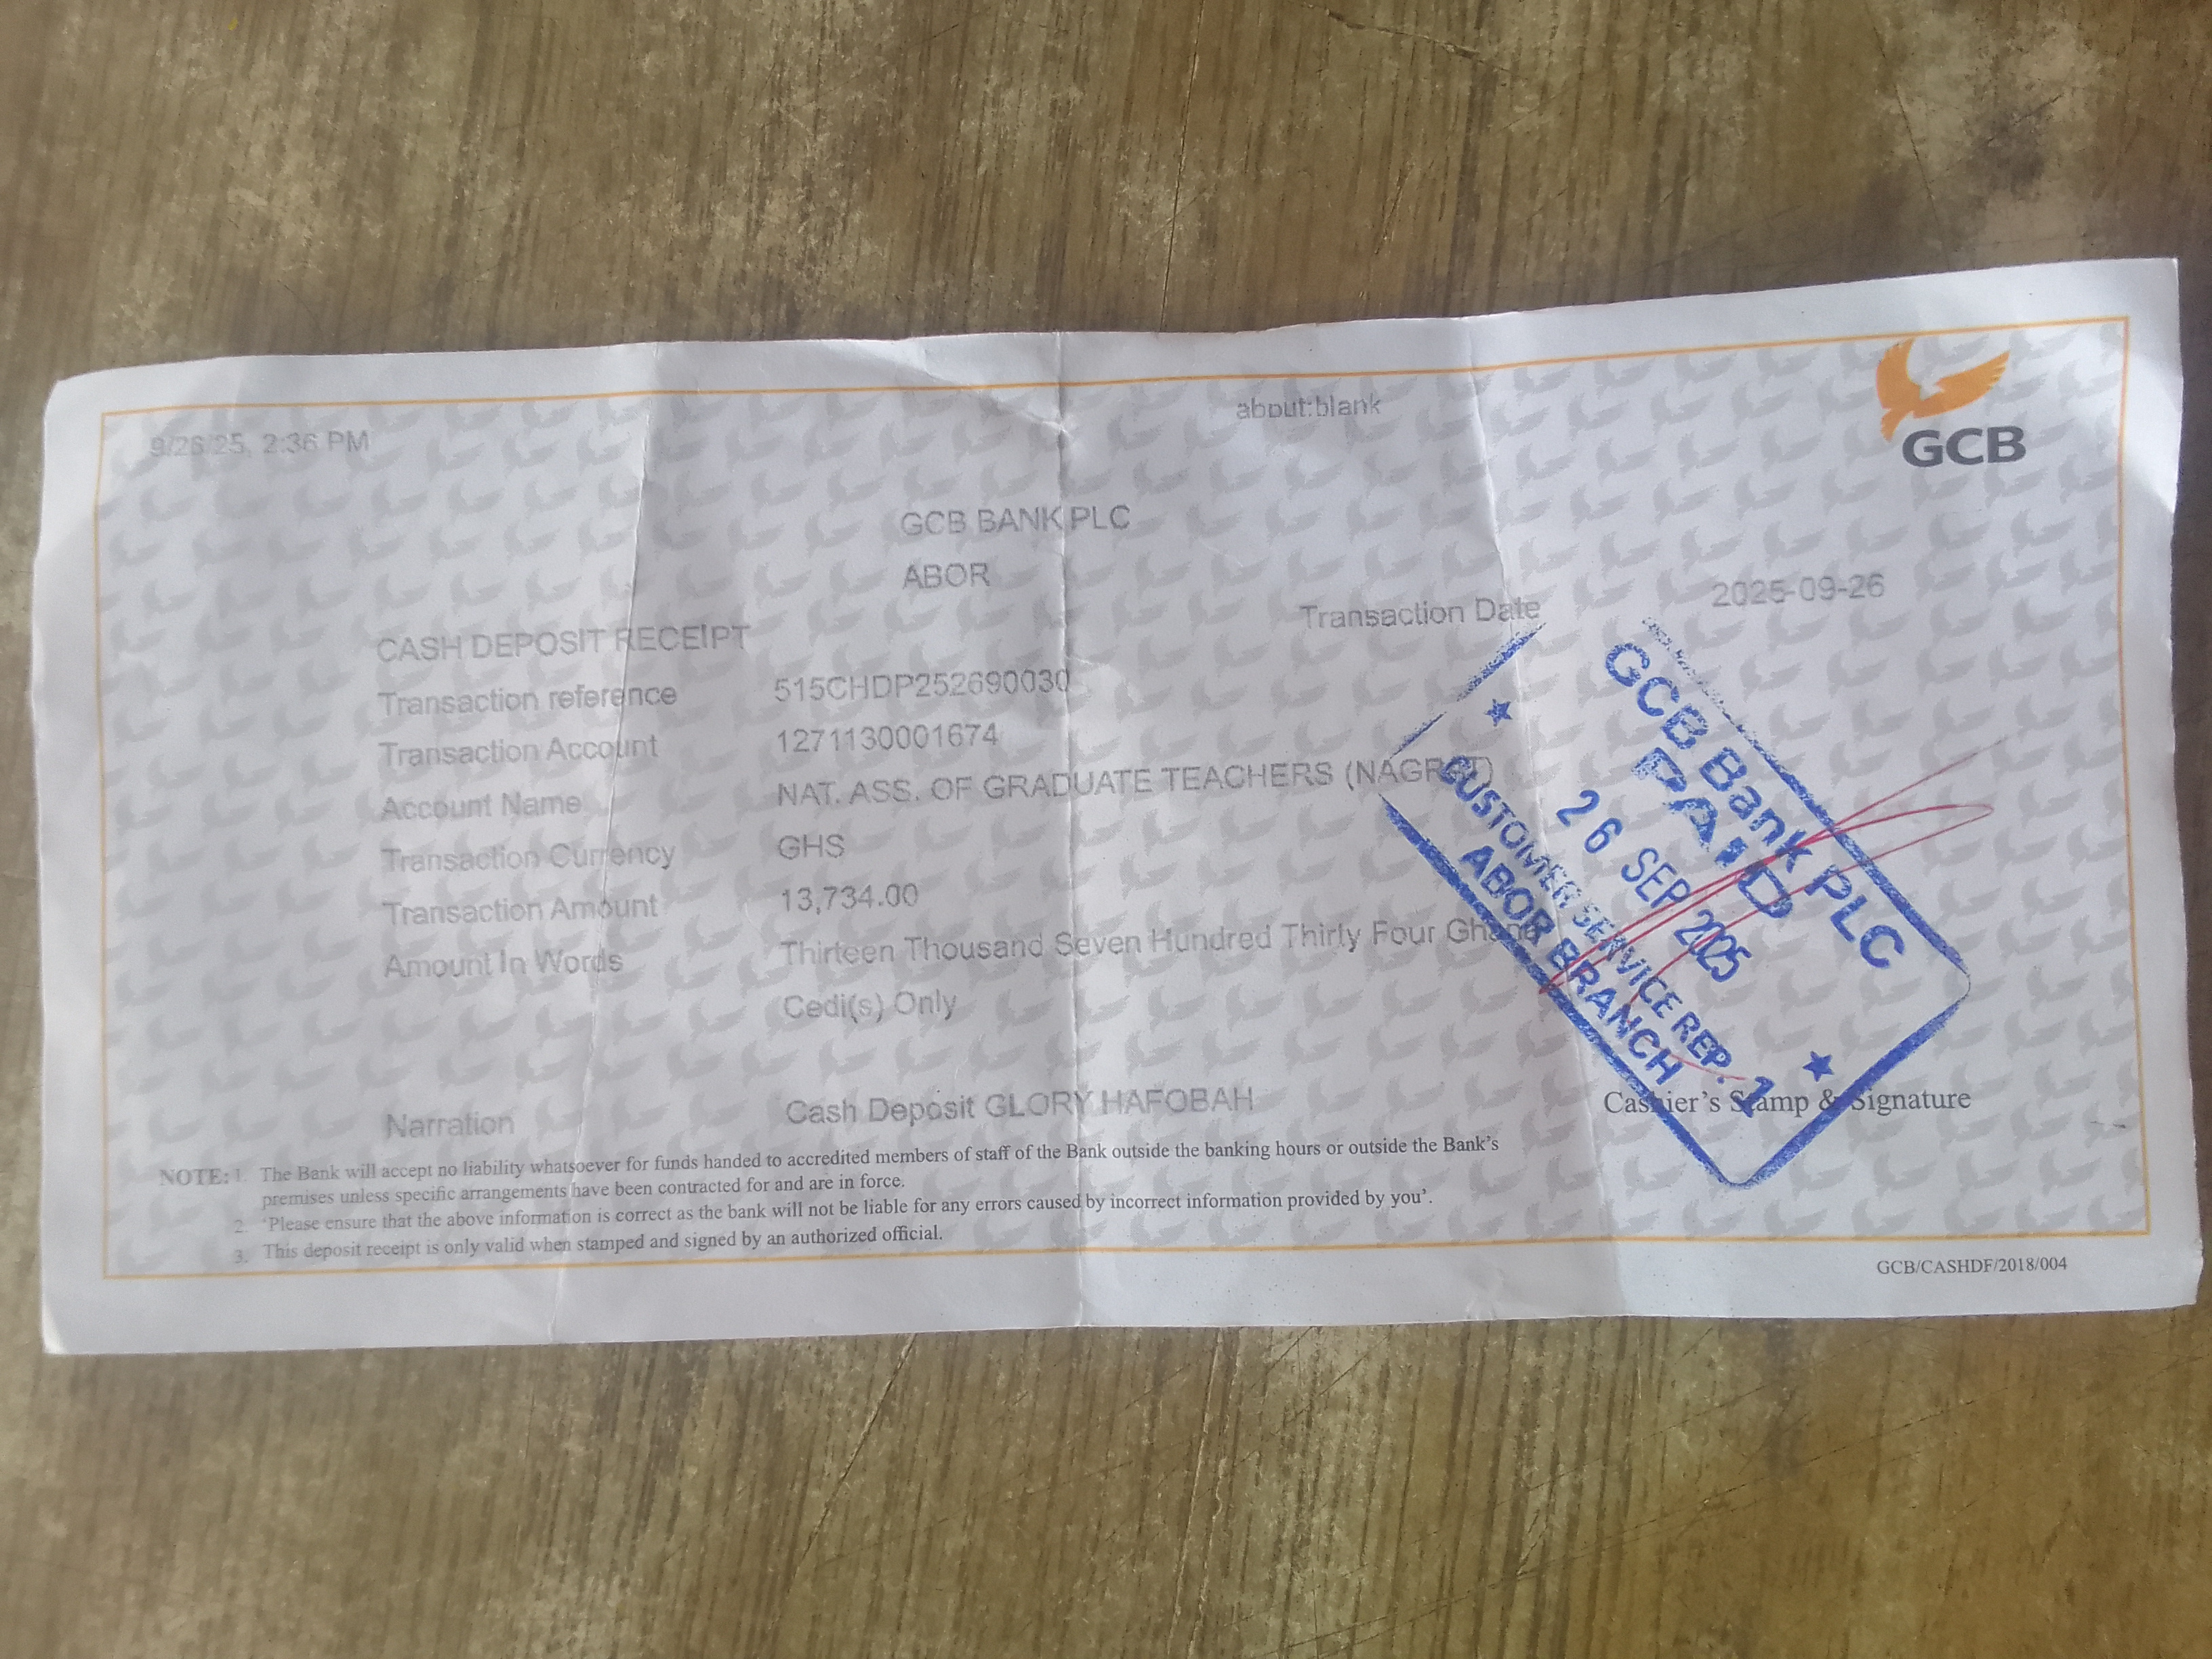 9/26/25, 2:36 PM
about:blank
GCB
GCB BANK PLC
ABOR
Transaction Date 2025-09-26
CASH DEPOSIT RECEIPT
Transaction reference 515CHDP252690030
Transaction Account 1271130001674
Account Name NAT. ASS. OF GRADUATE TEACHERS (NAGRAT)
Transaction Currency GHS
Transaction Amount 13,734.00
Amount In Words Thirteen Thousand Seven Hundred Thirty Four Ghana
Cedi(s) Only
GCB Bank PLC
PAID
26 SEP 2025
CUSTOMER SERVICE REP. 1
ABOR BRANCH
Narration Cash Deposit GLORY HAFOBAH
Cashier's Stamp & Signature
NOTE: 1. The Bank will accept no liability whatsoever for funds handed to accredited members of staff of the Bank outside the banking hours or outside the Bank's
premises unless specific arrangements have been contracted for and are in force.
2. 'Please ensure that the above information is correct as the bank will not be liable for any errors caused by incorrect information provided by you'.
3. This deposit receipt is only valid when stamped and signed by an authorized official.
GCB/CASHDF/2018/004